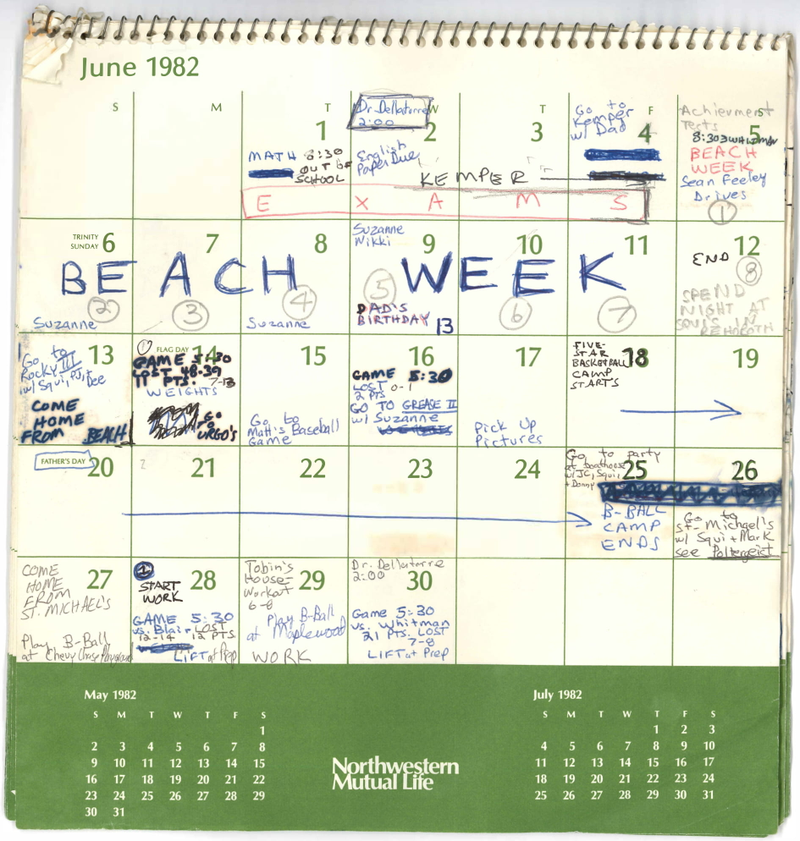 June 1982
S M T W T F S
1
MATH 8:30
OUT OF
SCHOOL
Dr. Dellatorre
2:00
2
English
Paper Due
3
KEMPER
Go to
Kemper
w/ Dad
4
Achievment
Tests
8:30
5
BEACH
WEEK
Sean Feeley
Drives
1
E X A M S
TRINITY
SUNDAY 6
7
8
Suzanne
Nikki
9
10
11
12
END
BEACH WEEK
2
Suzanne
3
4
Suzanne
5
DAD'S
BIRTHDAY
13
6
7
8
SPEND
NIGHT AT
SQUI'S IN
REHOBOTH
13
Go to
Rocky III
w/ Squi, PJ,
Dee
COME
HOME
FROM BEACH
1
FLAG DAY
14
GAME 5:30
LOST 48-39
11 PTS. 7-13
WEIGHTS
GO
TO
URGO'S
15
Go to
Matt's Baseball
Game
16
GAME 5:30
LOST 0-1
2 PTS
GO TO GREASE II
w/ Suzanne
17
Pick Up
Pictures
FIVE-
STAR
BASKETBALL
CAMP
STARTS
18
19
FATHER'S DAY
20
21
22
23
24
Go to party
at boathouse
w/ JC, Squi
+ Donny
25
B-BALL
CAMP
ENDS
26
Go to
St. Michael's
w/ Squi + Mark
see Poltergeist
27
COME
HOME
FROM
ST. MICHAEL'S
Play B-Ball
at Chevy Chase Playground
1
28
START
WORK
GAME 5:30
vs. Blair LOST
12-14 12 PTS
LIFT at Prep
29
Tobin's
House-
Workout
6-8
Play B-Ball
at Maplewood
WORK
Dr. Dellatorre
2:00
30
Game 5:30
vs. Whitman
21 Pts. LOST
7-8
LIFT at Prep
May 1982
S M T W T F S
1
2 3 4 5 6 7 8
9 10 11 12 13 14 15
16 17 18 19 20 21 22
23 24 25 26 27 28 29
30 31
Northwestern
Mutual Life
July 1982
S M T W T F S
1 2 3
4 5 6 7 8 9 10
11 12 13 14 15 16 17
18 19 20 21 22 23 24
25 26 27 28 29 30 31